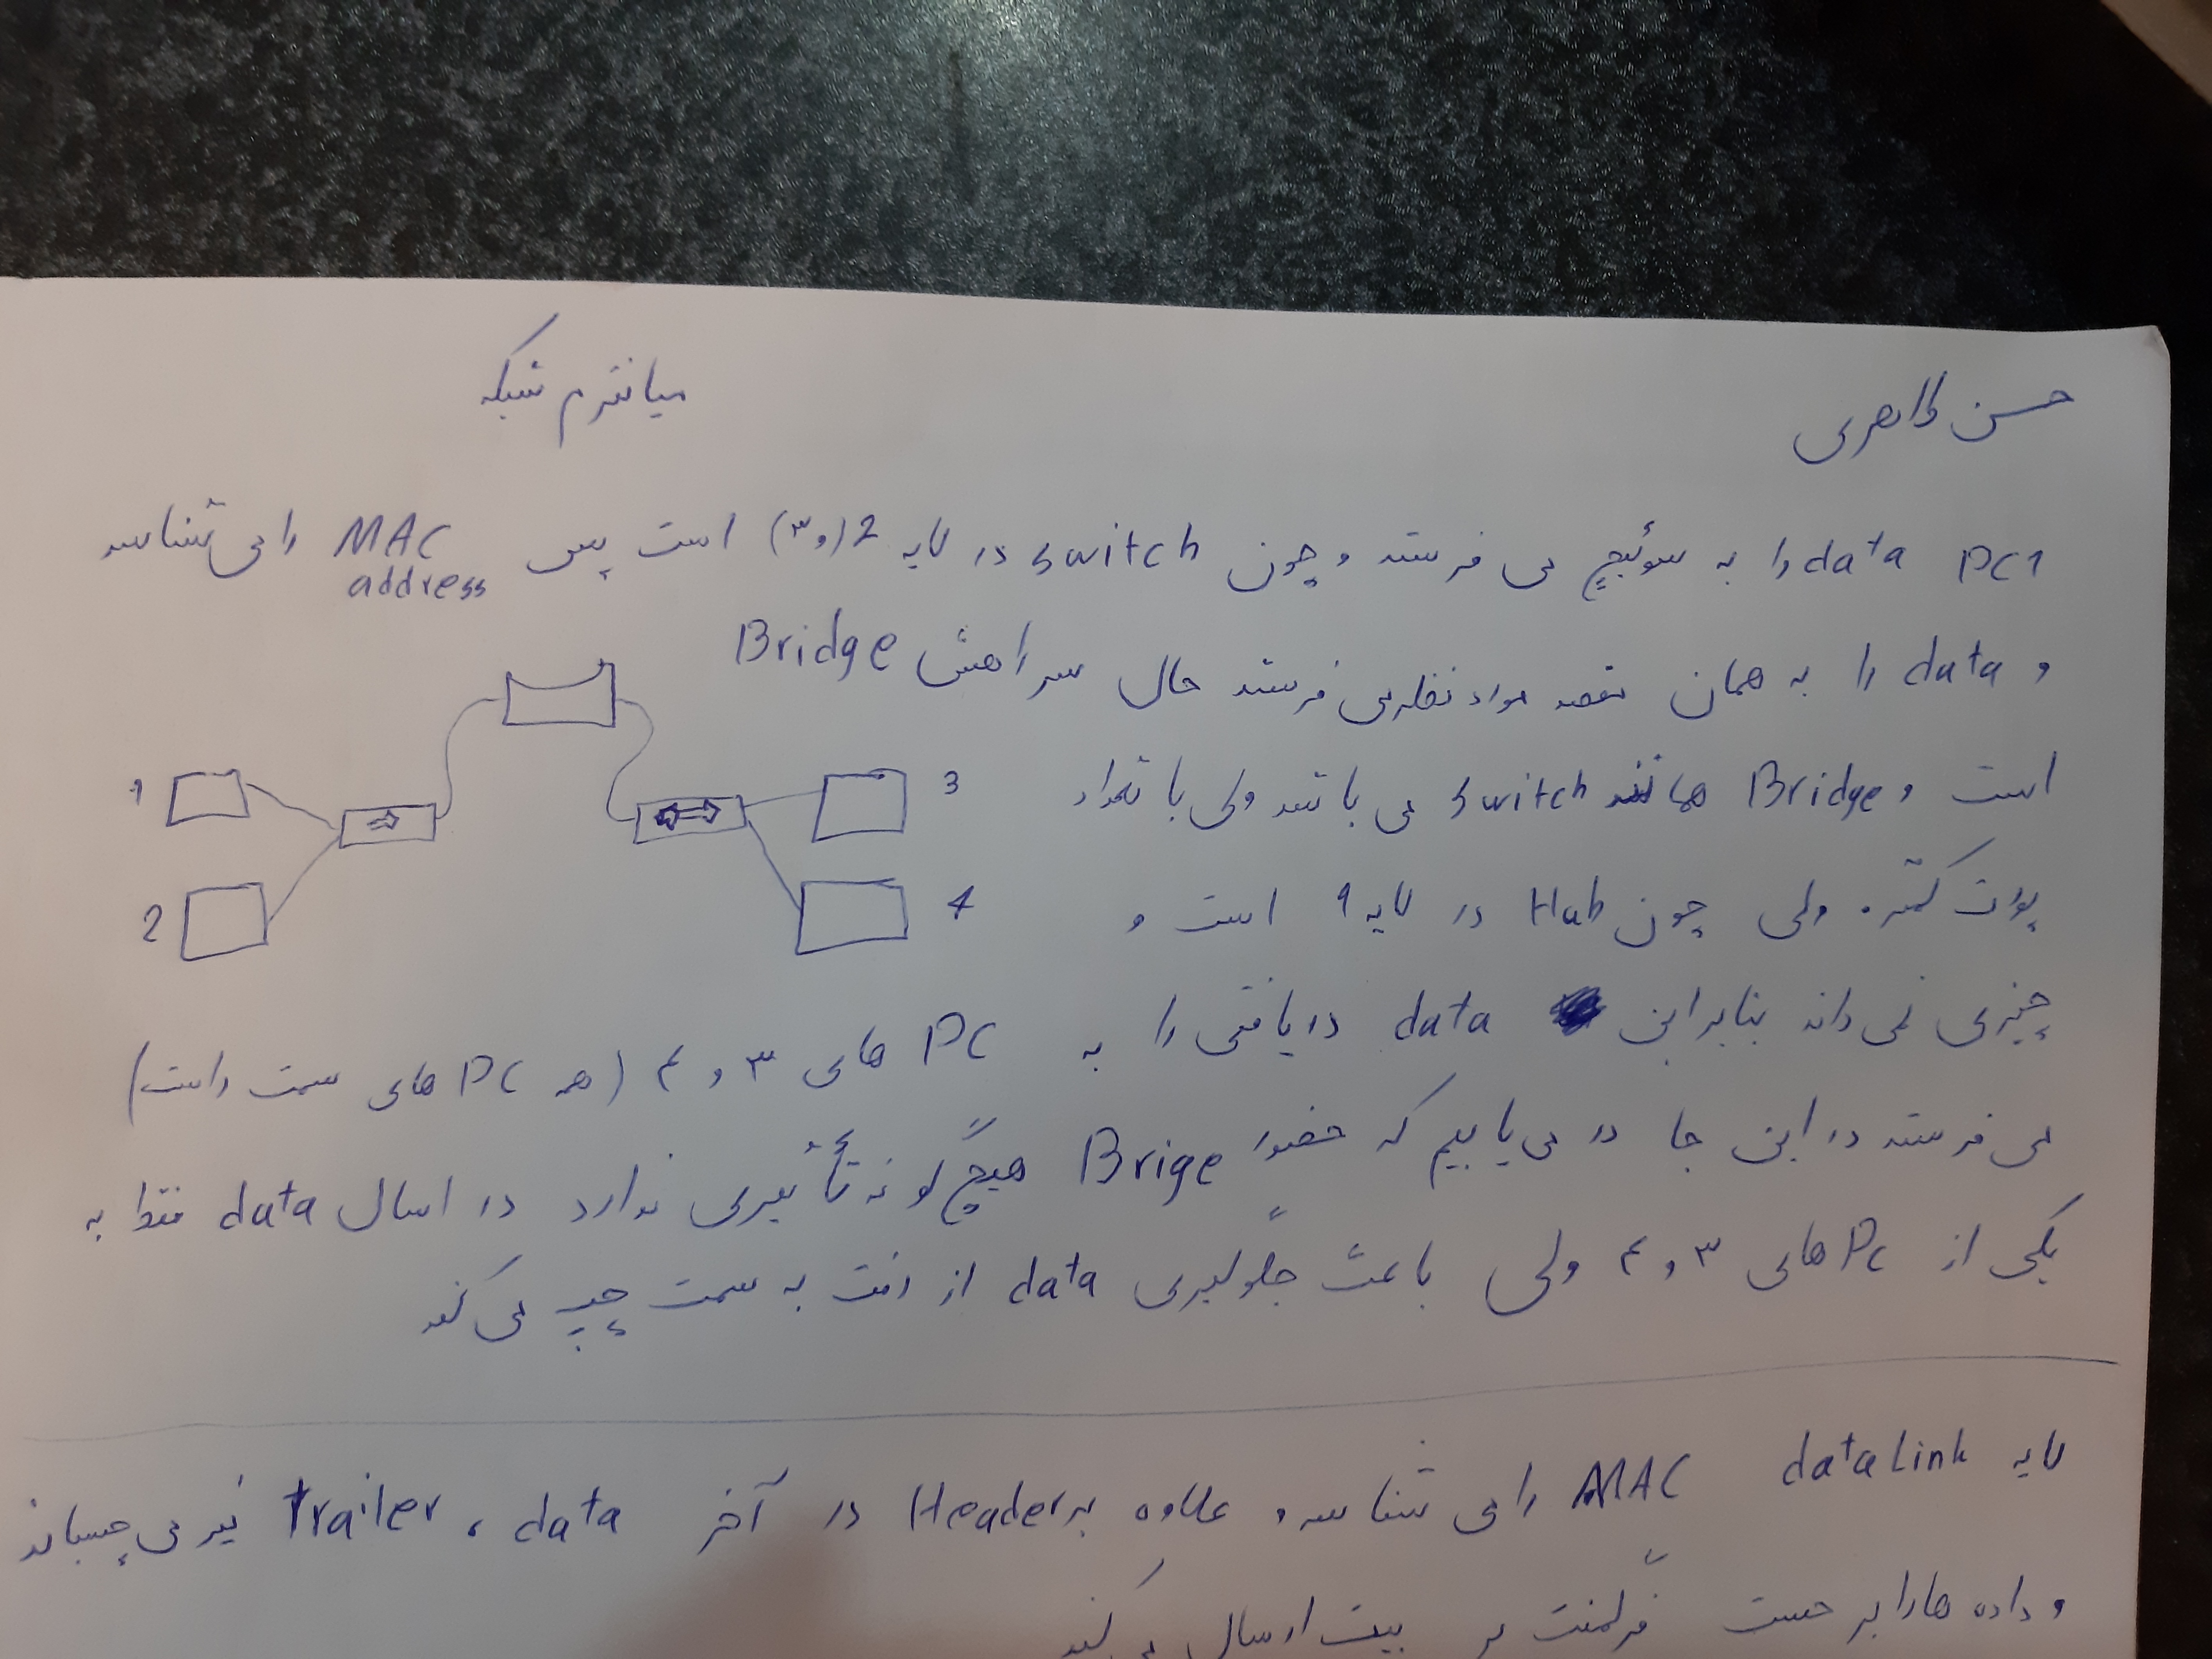 حسن طاهری
میانترم شبکه
PC1 data را به سوئیچ می فرستد و چون switch در لایه 2 (و ۳) است پس MAC address را می شناسد
و data را به همان مقصد مورد نظر می فرستد حال سر راهش Bridge
است و Bridge همانند switch می باشد ولی با تعداد
پورت کمتر. ولی چون Hub در لایه 1 است و
چیزی نمی داند بنابراین data دریافتی را به PC های ۳ و ۴ (همه PC های سمت راست)
می فرستد در این جا در می یابیم که حضور Brige هیچ گونه تأثیری ندارد در ارسال data فقط به
یکی از PC های ۳ و ۴ ولی باعث جلوگیری data از رفت به سمت چپ می کند
1
2
3
4
لایه data Link MAC را می شناسد و علاوه بر Header در آخر data، Trailer نیز می چسباند
و داده ها را بر حسب بیت ارسال می کند